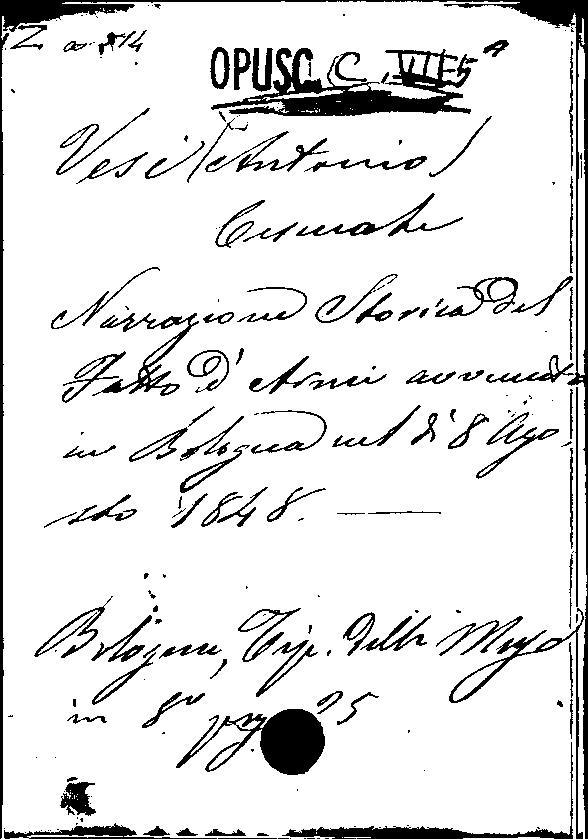 OPUSC. C. VII 5 A
Vesi (Antonio)
Narrazione Storica del
Fatto d'Armi avvenuto
in Bologna nel dì 8 Ago-
sto 1848. —
Bologna, Tip. delle Muse
in 8º pag 25